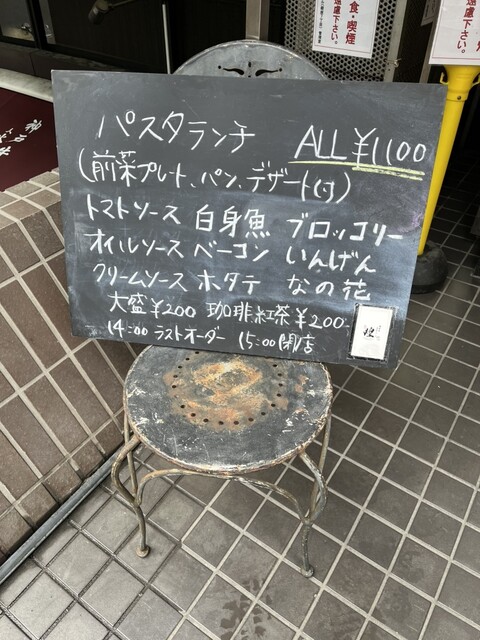 食・喫煙
遠慮下さい。
遠慮下さい。
パスタランチ ALL ¥1100
(前菜プレート、パン、デザート付)
トマトソース 白身魚 ブロッコリー
オイルソース ベーコン いんげん
クリームソース ホタテ なの花
大盛¥200 珈琲紅茶¥200-
14:00 ラストオーダー 15:00 閉店